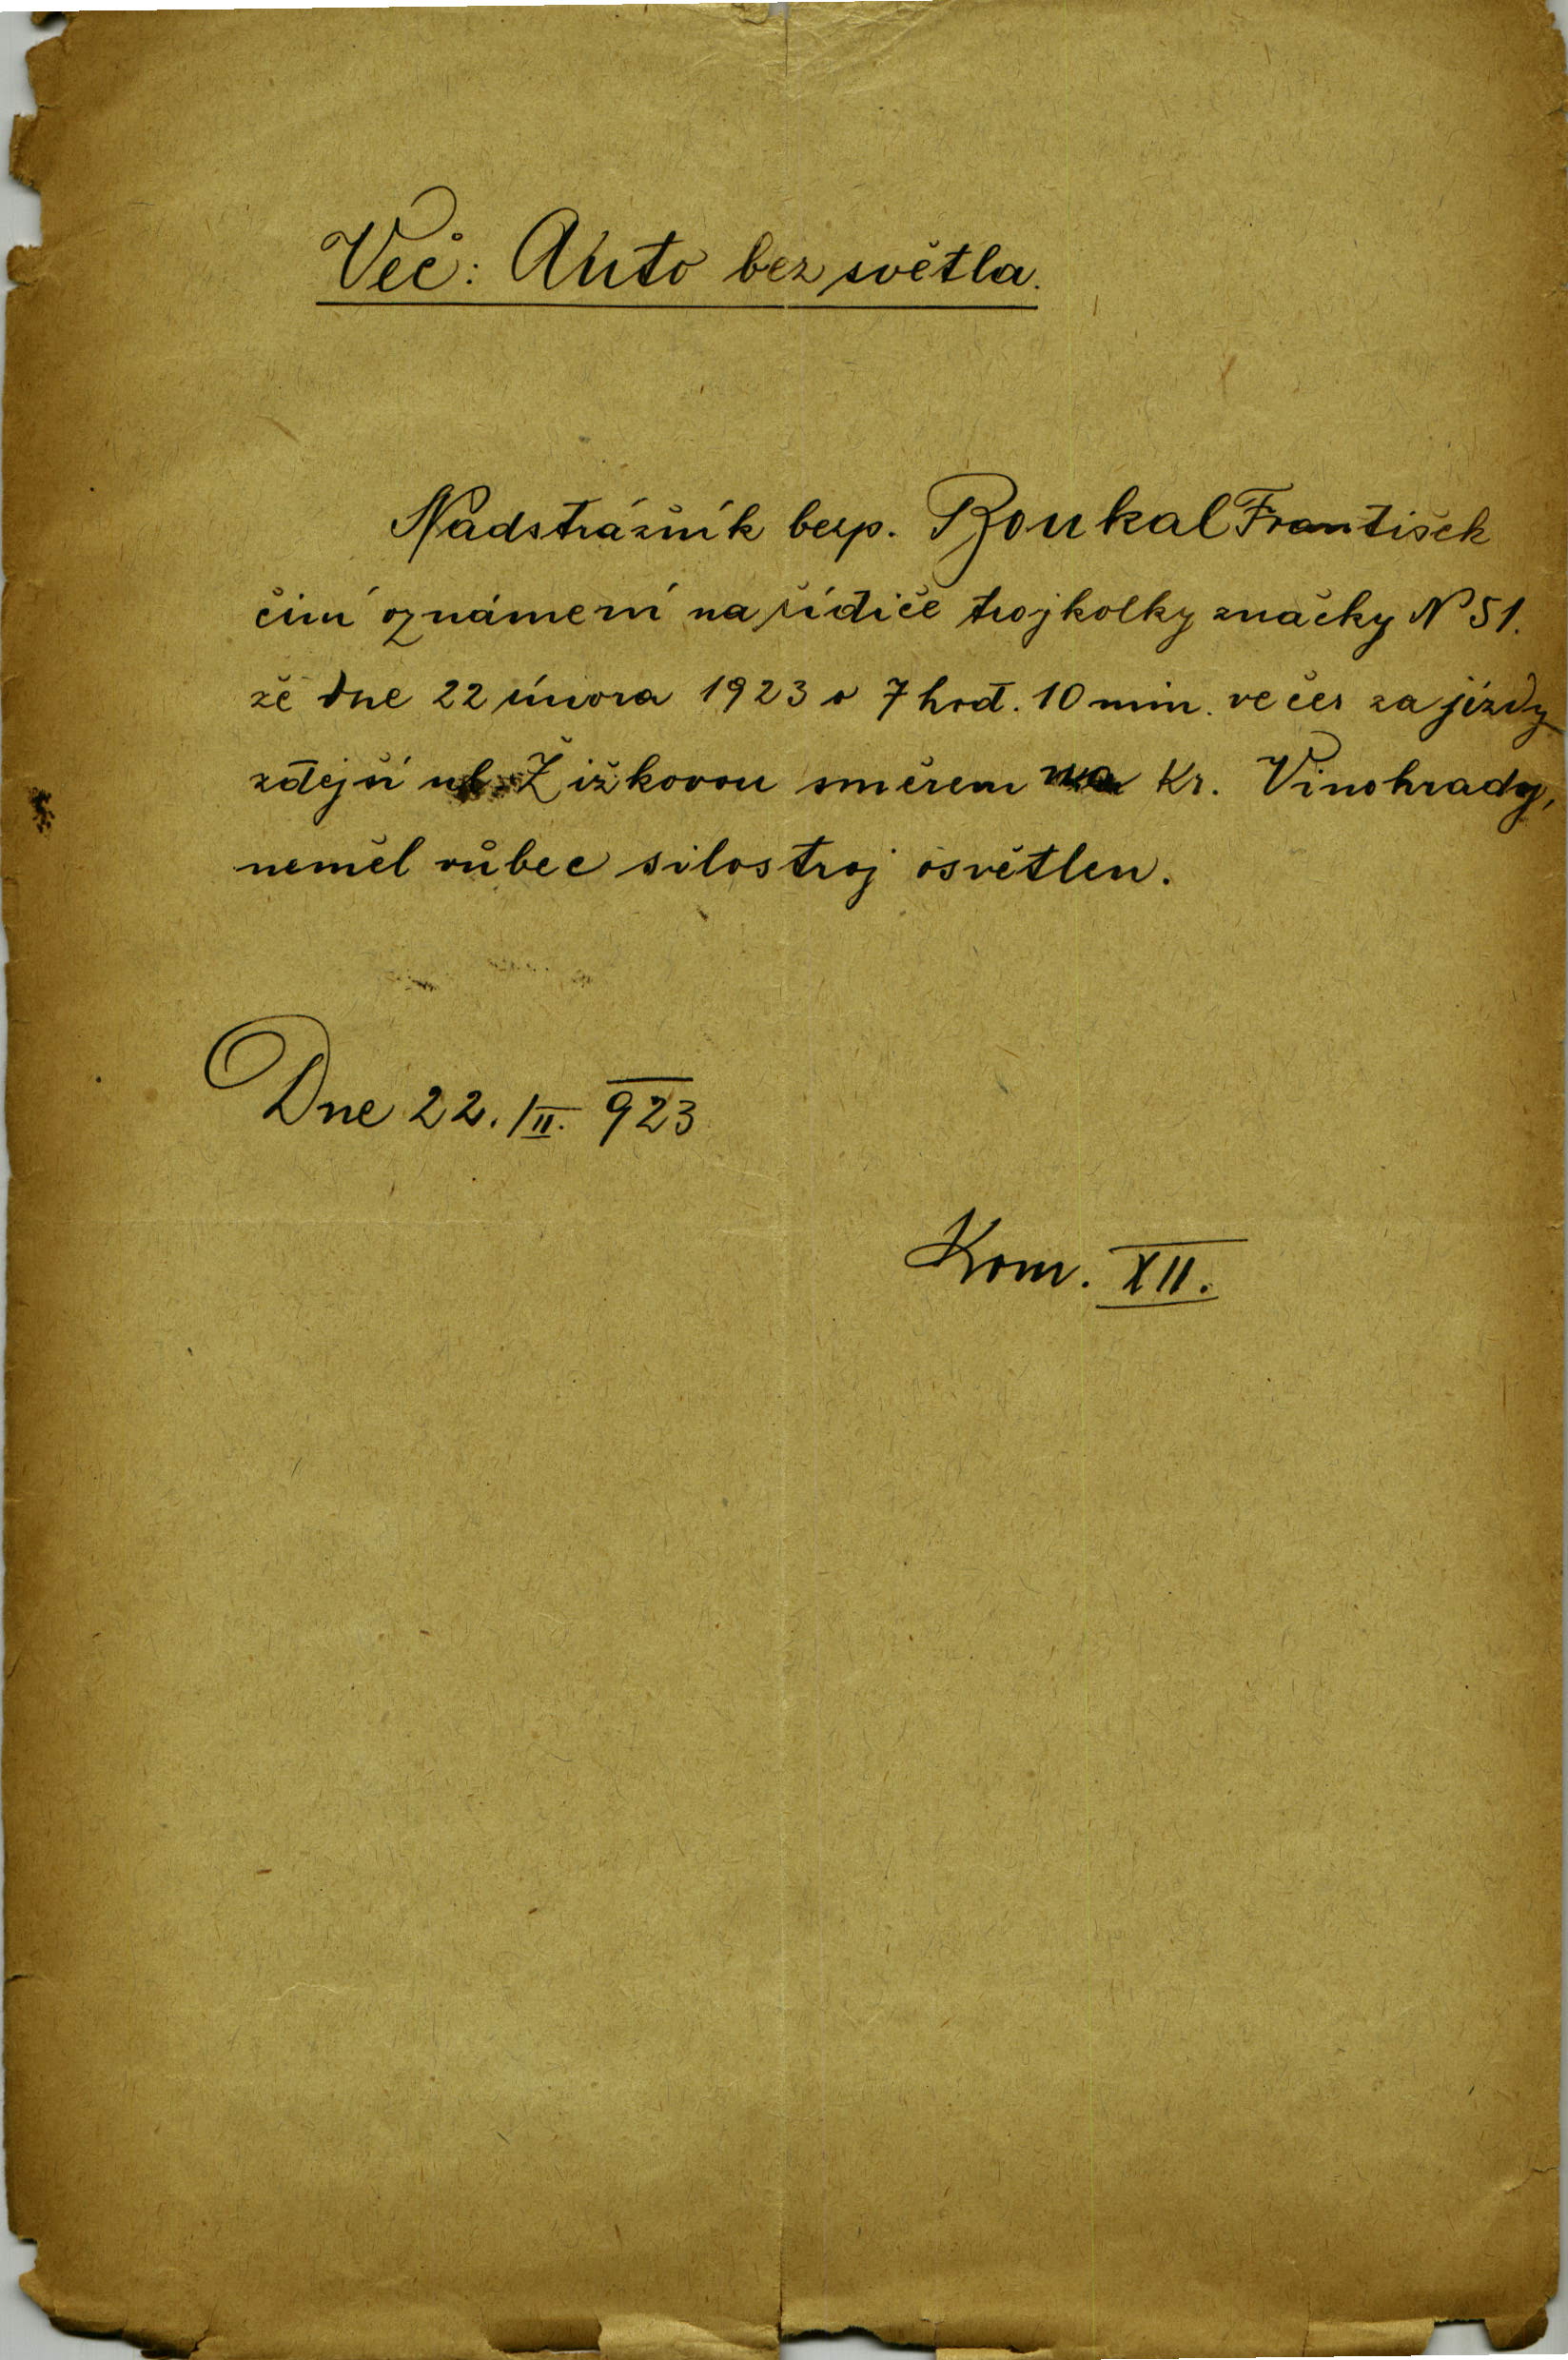 Věc: Auto bez světla.
Nadstrážník bezp. Boukal František
činí oznámení na řidiče trojkolky značky N 51.
že dne 22 února 1923 o 7 hod. 10 min. večer za jízdy
zdejší ul. Žižkovou směrem na Kr. Vinohrady,
neměl vůbec silostroj osvětlen.
Dne 22. /II. 923
Kom. XII.